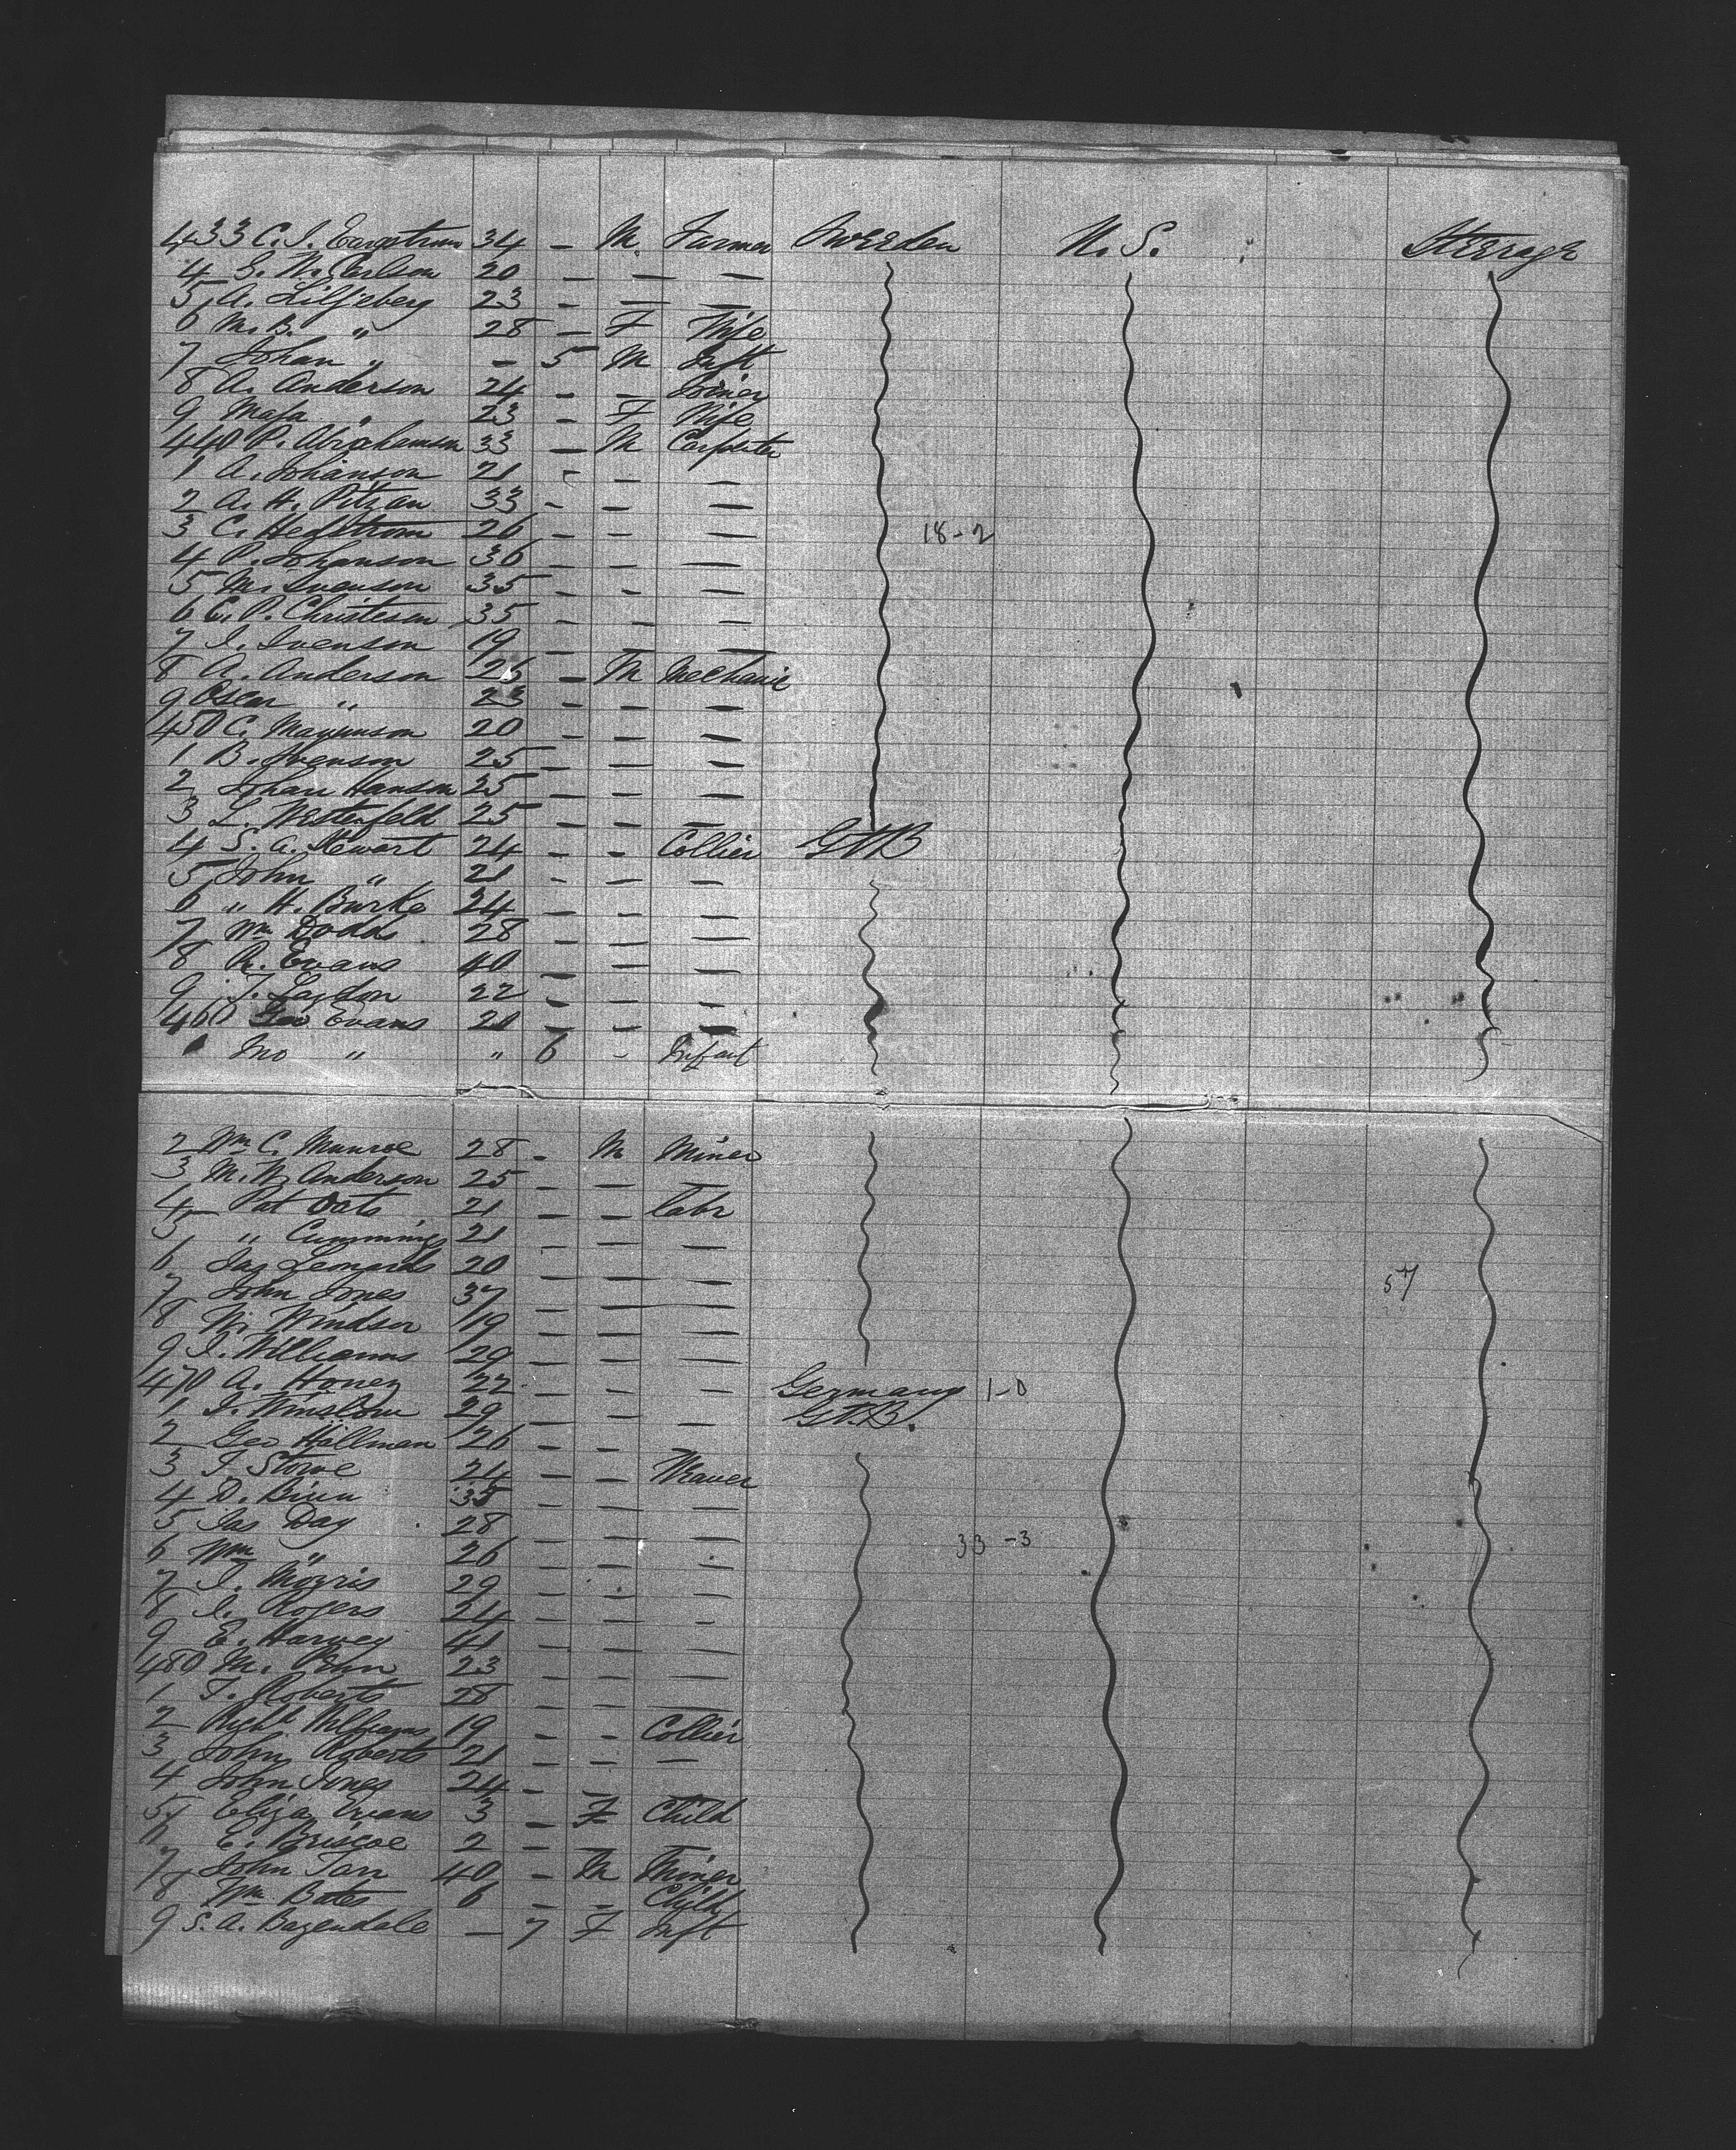 433 C. J. Bergstrum 34 - M Farmer Sweeden U.S. Steerage
4 G. W. Carlson 20 - - -
5 A. Liljeberg 23 - - -
6 M. B. " 28 - F Wife
7 Johan " - 5 M Inft
8 A. Anderson 24 - - Joiner
9 Maja " 23 - F Wife
440 P. Abrahamson 33 - M Carpenter
1 A. Johanson 21 - - -
2 A. H. Pitzan 33 - - -
3 C. Hedstrom 26 - - - 18-2
4 P. Johanson 36 - - -
5 M. Svenson 35 - - -
6 C. P. Christeson 35 - - -
7 J. Svenson 19 - - -
8 A. Anderson 26 - M Mechanic
9 Oscar " 23 - - -
450 C. Magnuson 20 - - -
1 B. Svenson 25 - - -
2 Johan Hanson 25 - - -
3 L. Westenfeld 25 - - -
4 S. A. Stewart 24 - - Collier GtB
5 John " 21 - - -
6 " H. Burke 24 - - -
7 Wm Dodds 28 - - -
8 R. Evans 40 - - -
9 T. Laydon 22 - - -
460 Geo Evans 21 - - -
Jno " " 6 - Infant
2 Wm C. Munroe 28 - M Miner
3 M. W. Anderson 25 - - -
4 Pat Oats 21 - - labr
5 " Cummings 21 - - -
6 Jas Leonards 20 - - -
7 John Jones 37 - - - 57
8 W. Windsor 19 - - -
9 J. Williams 29 - - -
470 A. Honey 22 - - - Germany 1-0
1 J. Winslow 29 - - - Gt.B.
2 Geo Hallman 26 - -
3 J Stowe 24 - - Weaver
4 D. Binn 35 - - -
5 Jas Day 28 - - -
6 Wm " 26 - - - 33-3
7 J. Morris 29 - - -
8 J. Rogers 24 - - -
9 E. Harvey 41 - - -
480 M. 23 - - -
1 T. Roberts 28 - - -
2 Richd Williams 19 - - Collier
3 John Roberts 21 - - -
4 John Jones 24 - - -
5 Eliza Evans 3 - F Child
6 E. Briscoe 2 - - -
7 John Tarr 40 - M Miner
8 Wm Bates 6 - - Child
9 S. A. Bazendale - 7 F Inft